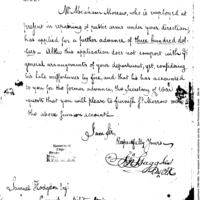 Mr. Abraham Morrow, who is employed at
present in repairing of public arms under your direction,
has applied for a further advance of three hundred dol-
lars. Altho this application does not comport with the
general arrangements of your department, yet, considering
his late misfortunes by fire, and that he has accounted
to you for the former advance, the Secretary of War re-
quests that you will please to furnish Mr Morrow with
the above sum on account.
I am Sir,
Respectfully Yours
Samuel Hodgdon Esqr